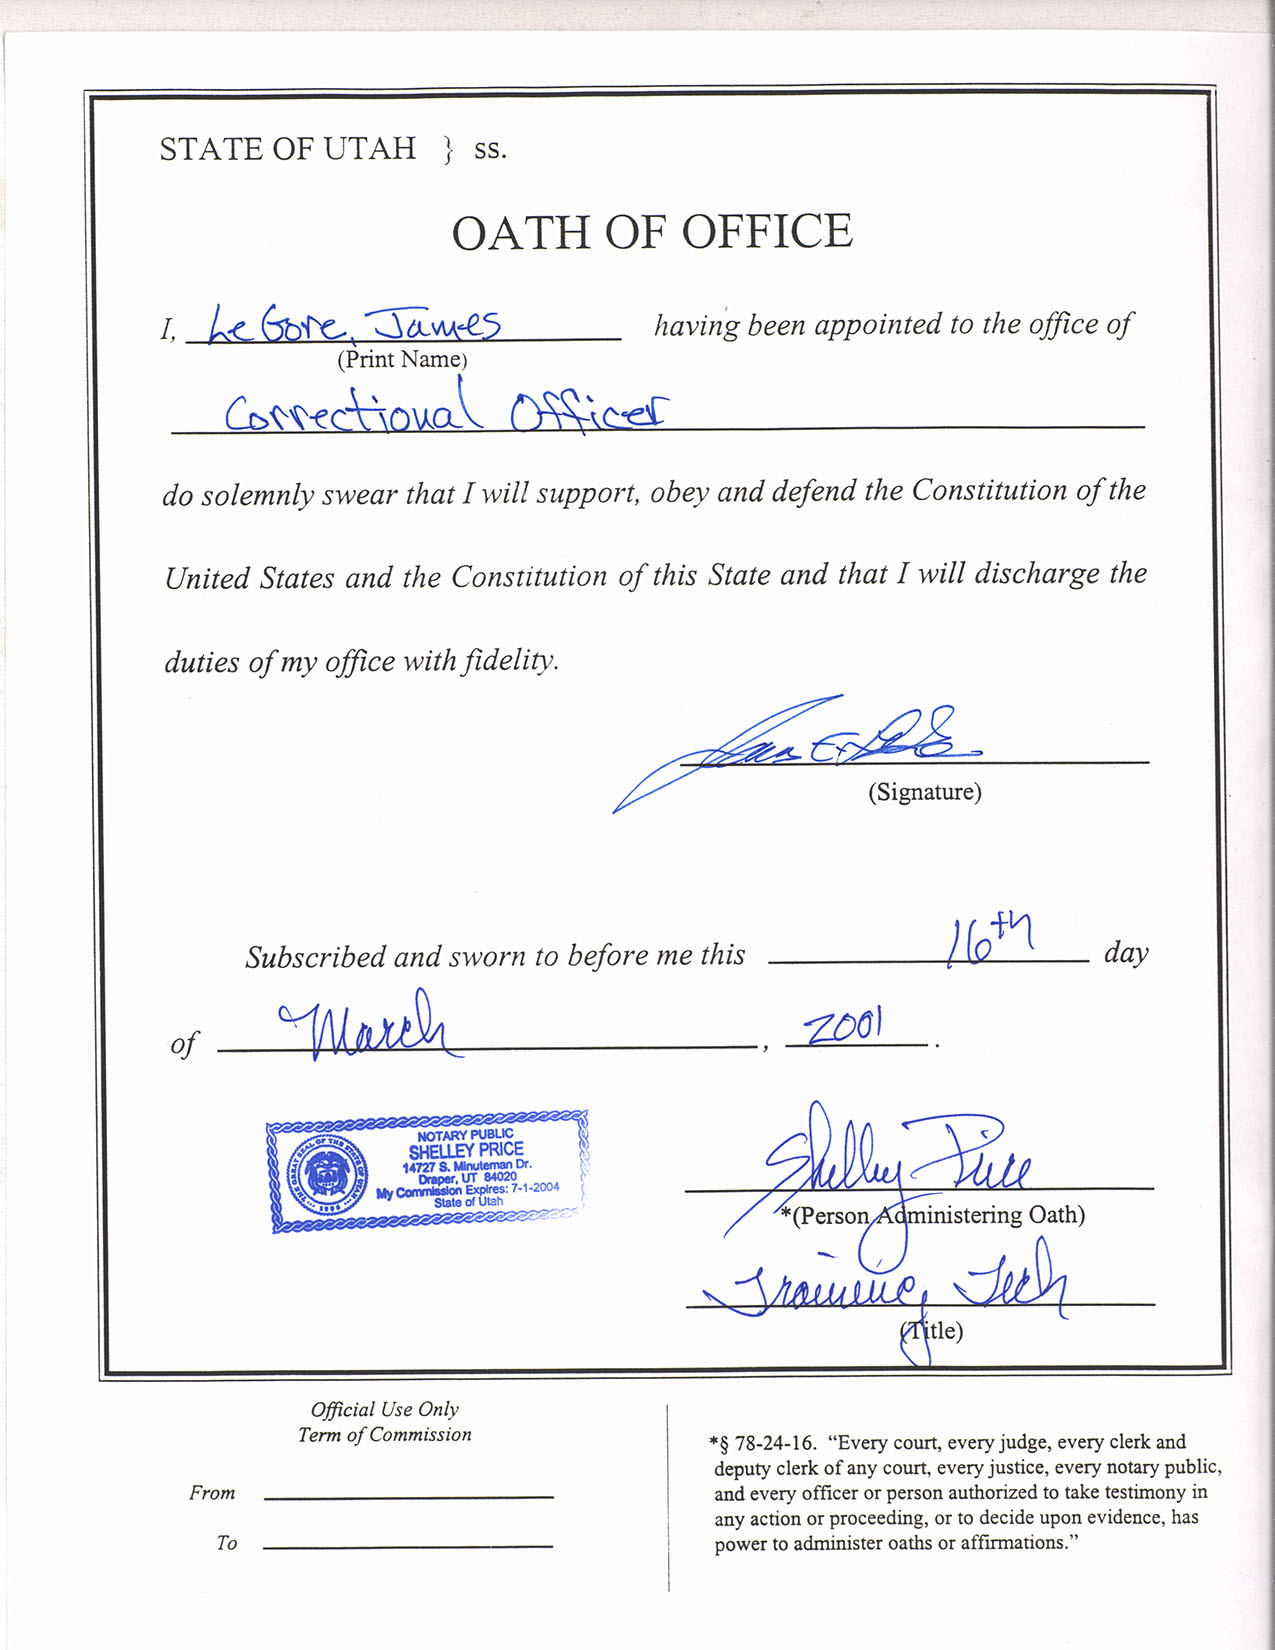 STATE OF UTAH } ss.
OATH OF OFFICE
I, LeGore, James having been appointed to the office of
(Print Name)
Correctional Officer
do solemnly swear that I will support, obey and defend the Constitution of the
United States and the Constitution of this State and that I will discharge the
duties of my office with fidelity.
(Signature)
Subscribed and sworn to before me this 16th day
of March, 2001.
NOTARY PUBLIC
SHELLEY PRICE
14727 S. Minuteman Dr.
Draper, UT 84020
My Commission Expires: 7-1-2004
State of Utah
THE GREAT SEAL OF THE STATE OF UTAH
1896
Shelley Price
*(Person Administering Oath)
Training Tech
(Title)
Official Use Only
Term of Commission
From
To
*§ 78-24-16. “Every court, every judge, every clerk and
deputy clerk of any court, every justice, every notary public,
and every officer or person authorized to take testimony in
any action or proceeding, or to decide upon evidence, has
power to administer oaths or affirmations.”